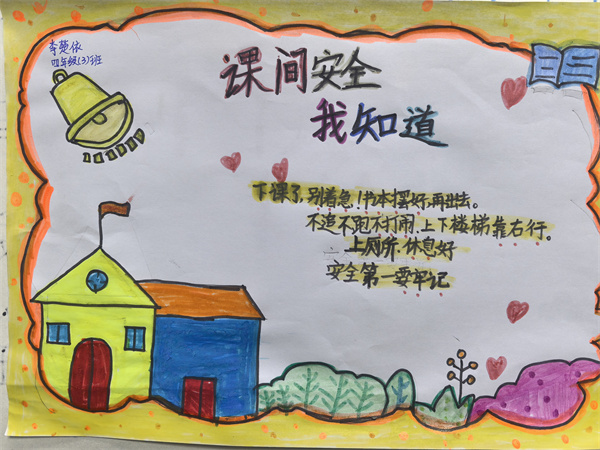 李楚依
四年级(3)班
课间安全
我知道
下课了,别着急!书本摆好,再出去。
不追不跑不打闹.上下楼梯靠右行。
上厕所.休息好
安全第一要牢记